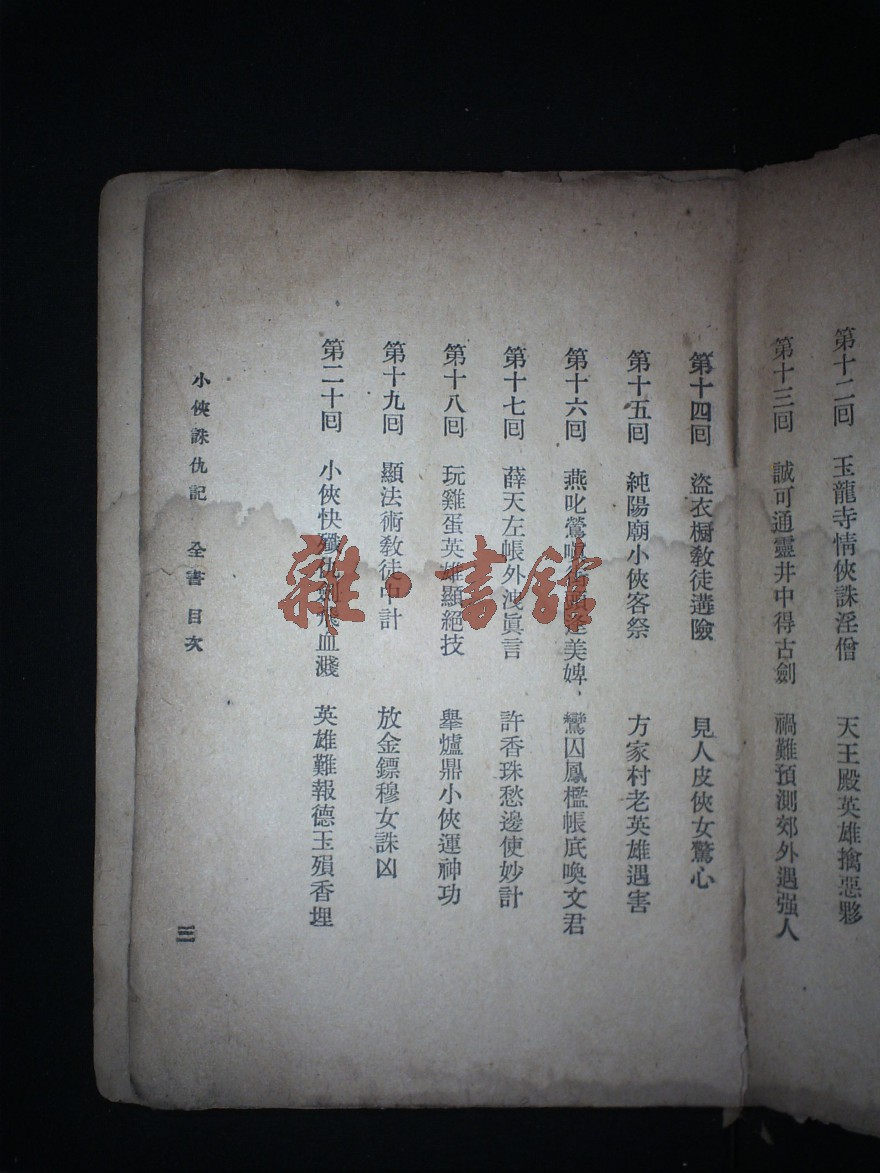 第十二囘 玉龍寺情俠誅淫僧 天王殿英雄擒惡夥
第十三囘 誠可通靈井中得古劍 禍難預測郊外遇强人
第十四囘 盜衣橱敎徒遘險 見人皮俠女驚心
第十五囘 純陽廟小俠客祭 方家村老英雄遇害
第十六囘 燕叱鶯嗔 逢美婢 鸞囚鳳檻帳底喚文君
第十七囘 薛天左帳外洩眞言 許香珠愁邊使妙計
第十八囘 玩雞蛋英雄顯絕技 舉爐鼎小俠運神功
第十九囘 顯法術敎徒中計 放金鏢穆女誅凶
第二十囘 小俠快殲仇劍飛血濺 英雄難報德玉殞香埋
小俠誅仇記 全書目次
三
雜·書館